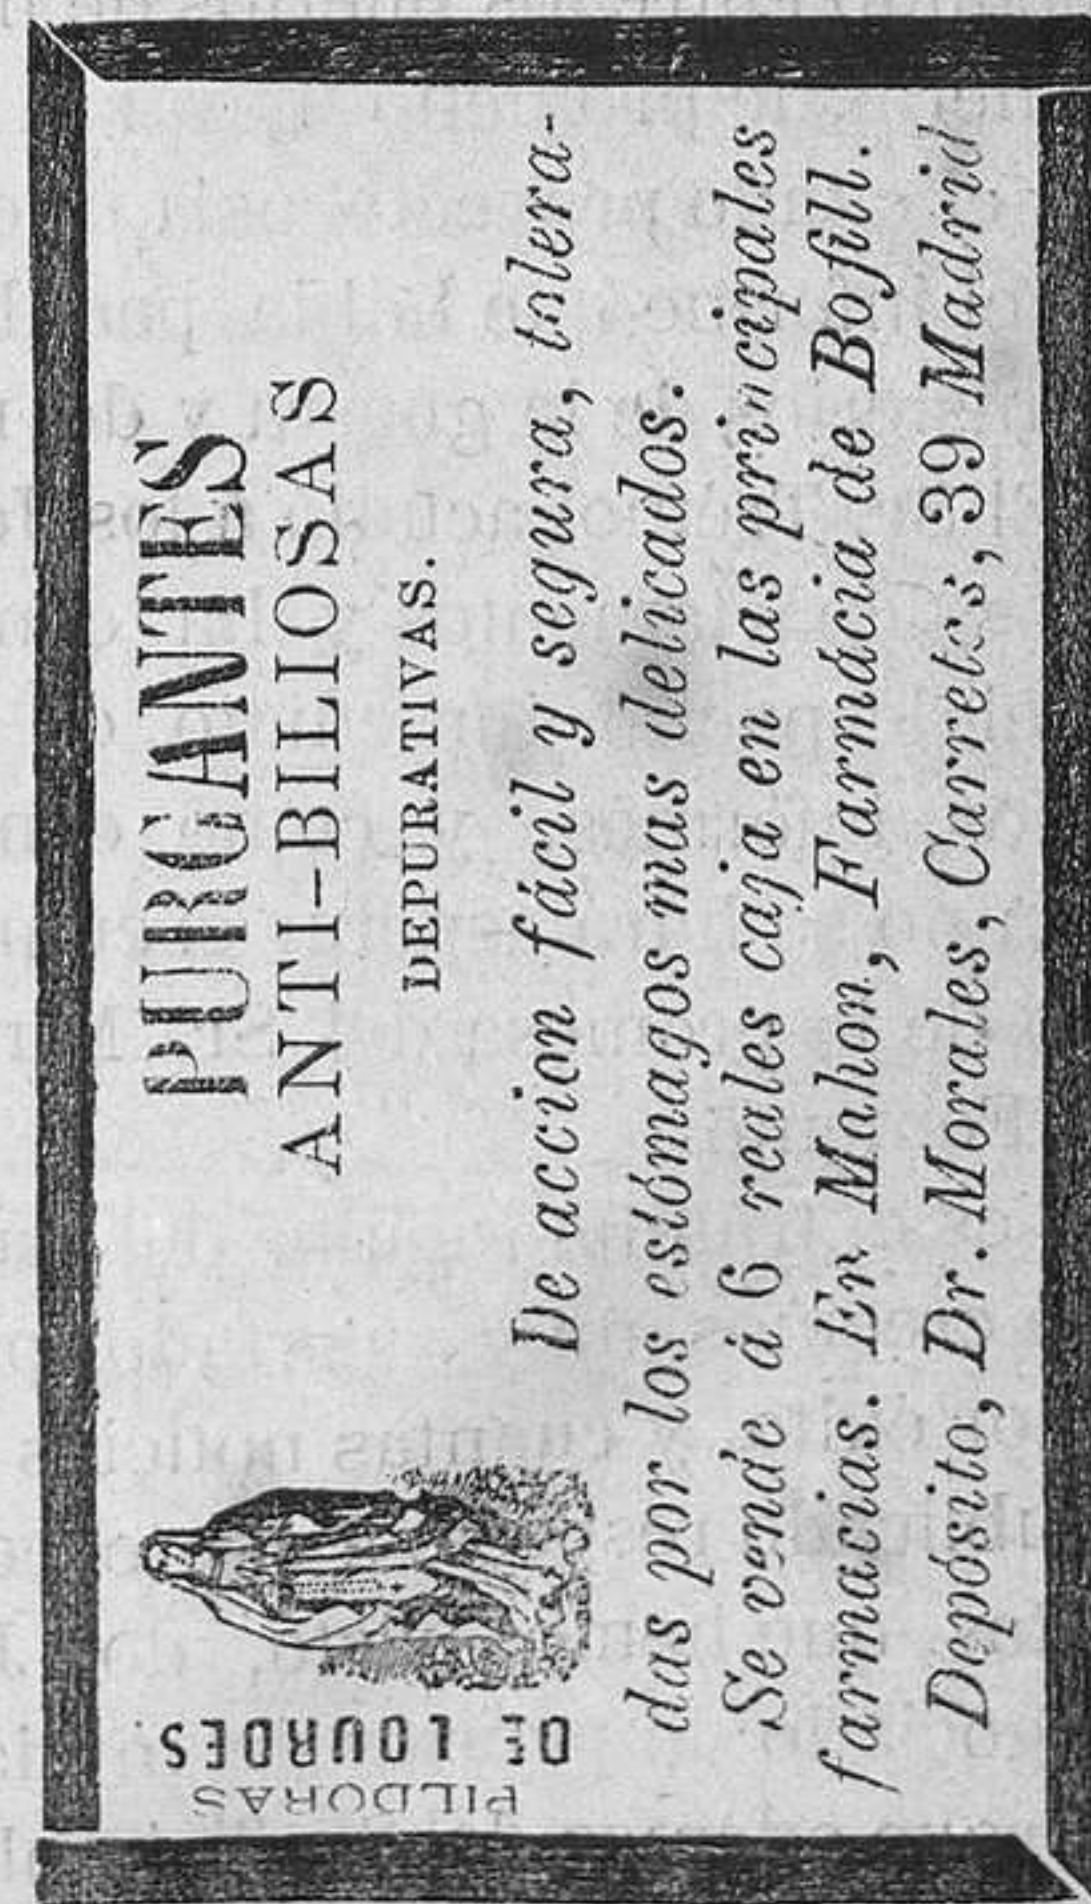 PILDORAS
DE LOURDES.
PURGANTES
ANTI-BILIOSAS
DEPURATIVAS.
De accion fácil y segura, tolera-
das por los estómagos mas delicados.
Se vende á 6 reales caja en las principales
farmacias. En Mahon, Farmácia de Bofill.
Depósito, Dr. Morales, Carretas, 39 Madrid